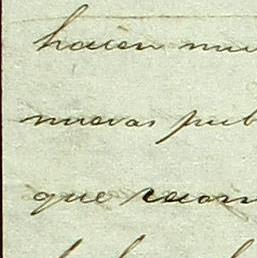 hacien mu
nuevas pub
que recom